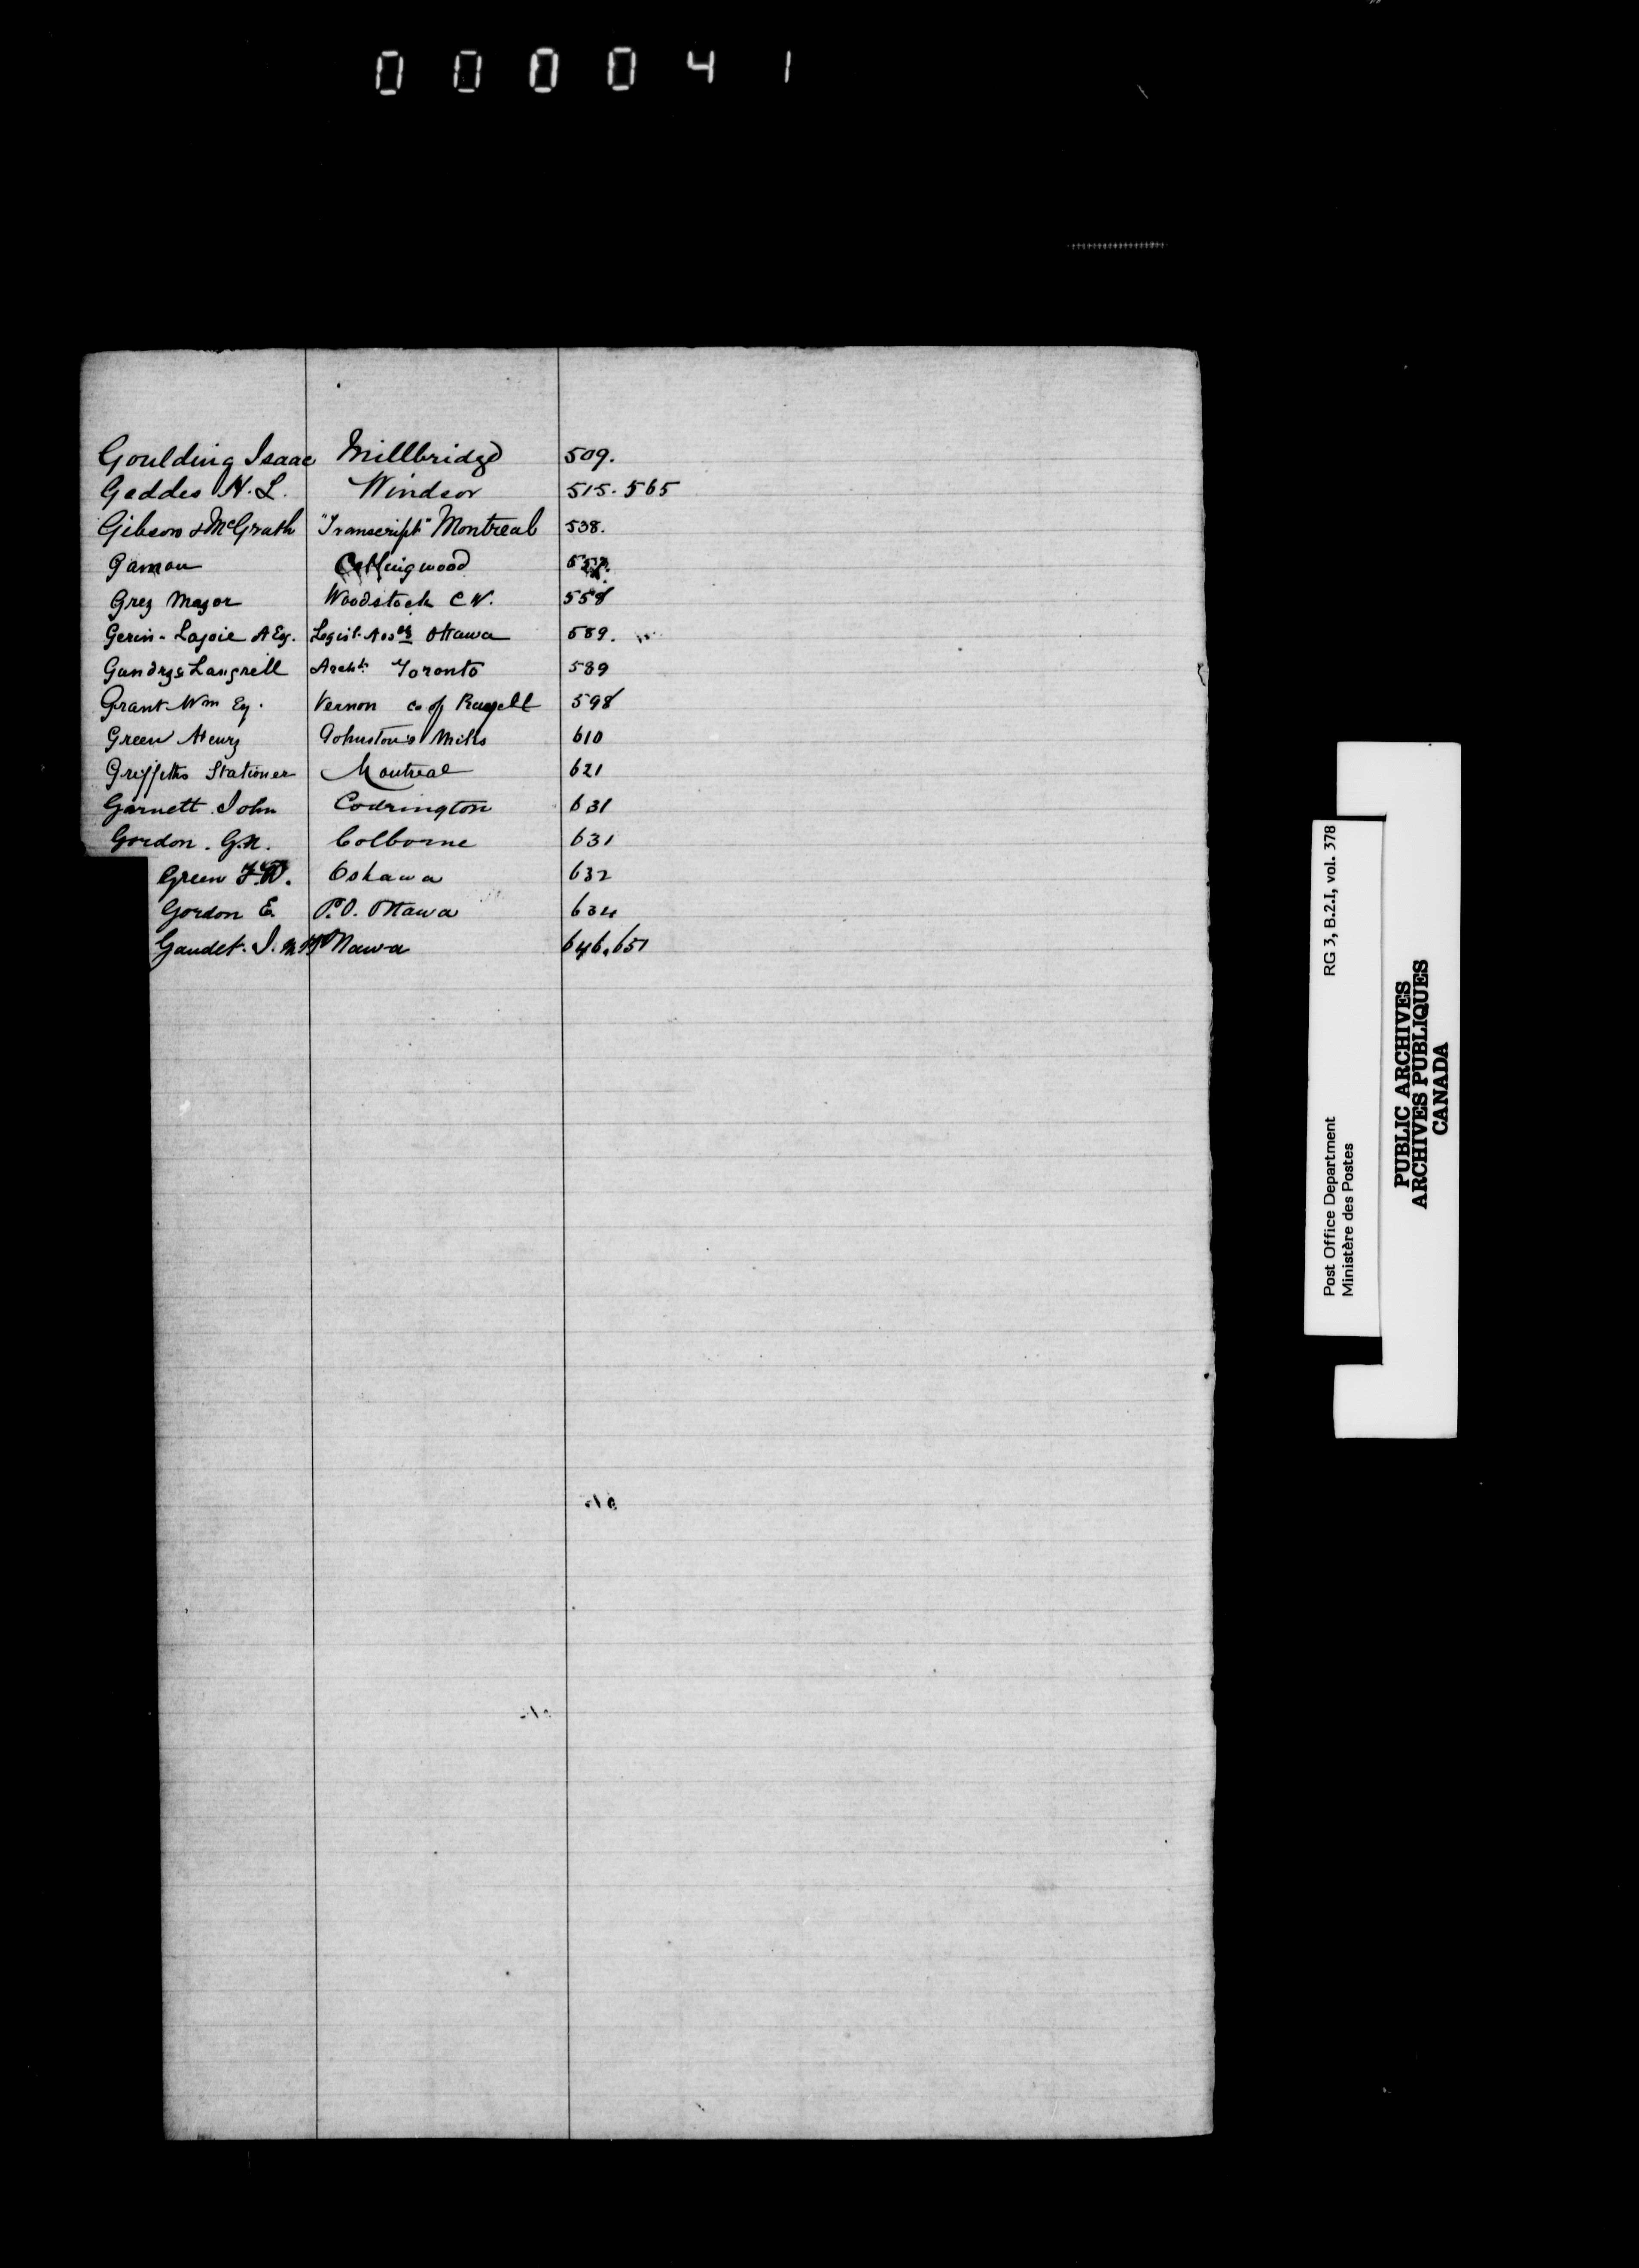 000041
Goulding Isaac Millbridge 509.
Geddes H. L. Windsor 515. 565
Gibson & McGrath "Transcript" Montreal 538.
Gamon Collingwood
Grey Major Woodstock C W. 558
Gerin-Lajoie A Esq. Legisl. Assly Ottawa 589.
Gundry & Langrell Archts Toronto 589
Grant Wm Esq. Vernon Co of Russell 598
Green Henry Johnston's Mills 610
Griffiths Stationer Montreal 621
Garnett. John Codrington 631
Gordon. G.N. Colborne 631
Green F.W. Oshawa 632
Gordon E. P.O. Ottawa 634
Gaudet. J. Ottawa 646.651
Post Office Department RG 3, B.2.I, vol. 378
Ministère des Postes
PUBLIC ARCHIVES
ARCHIVES PUBLIQUES
CANADA